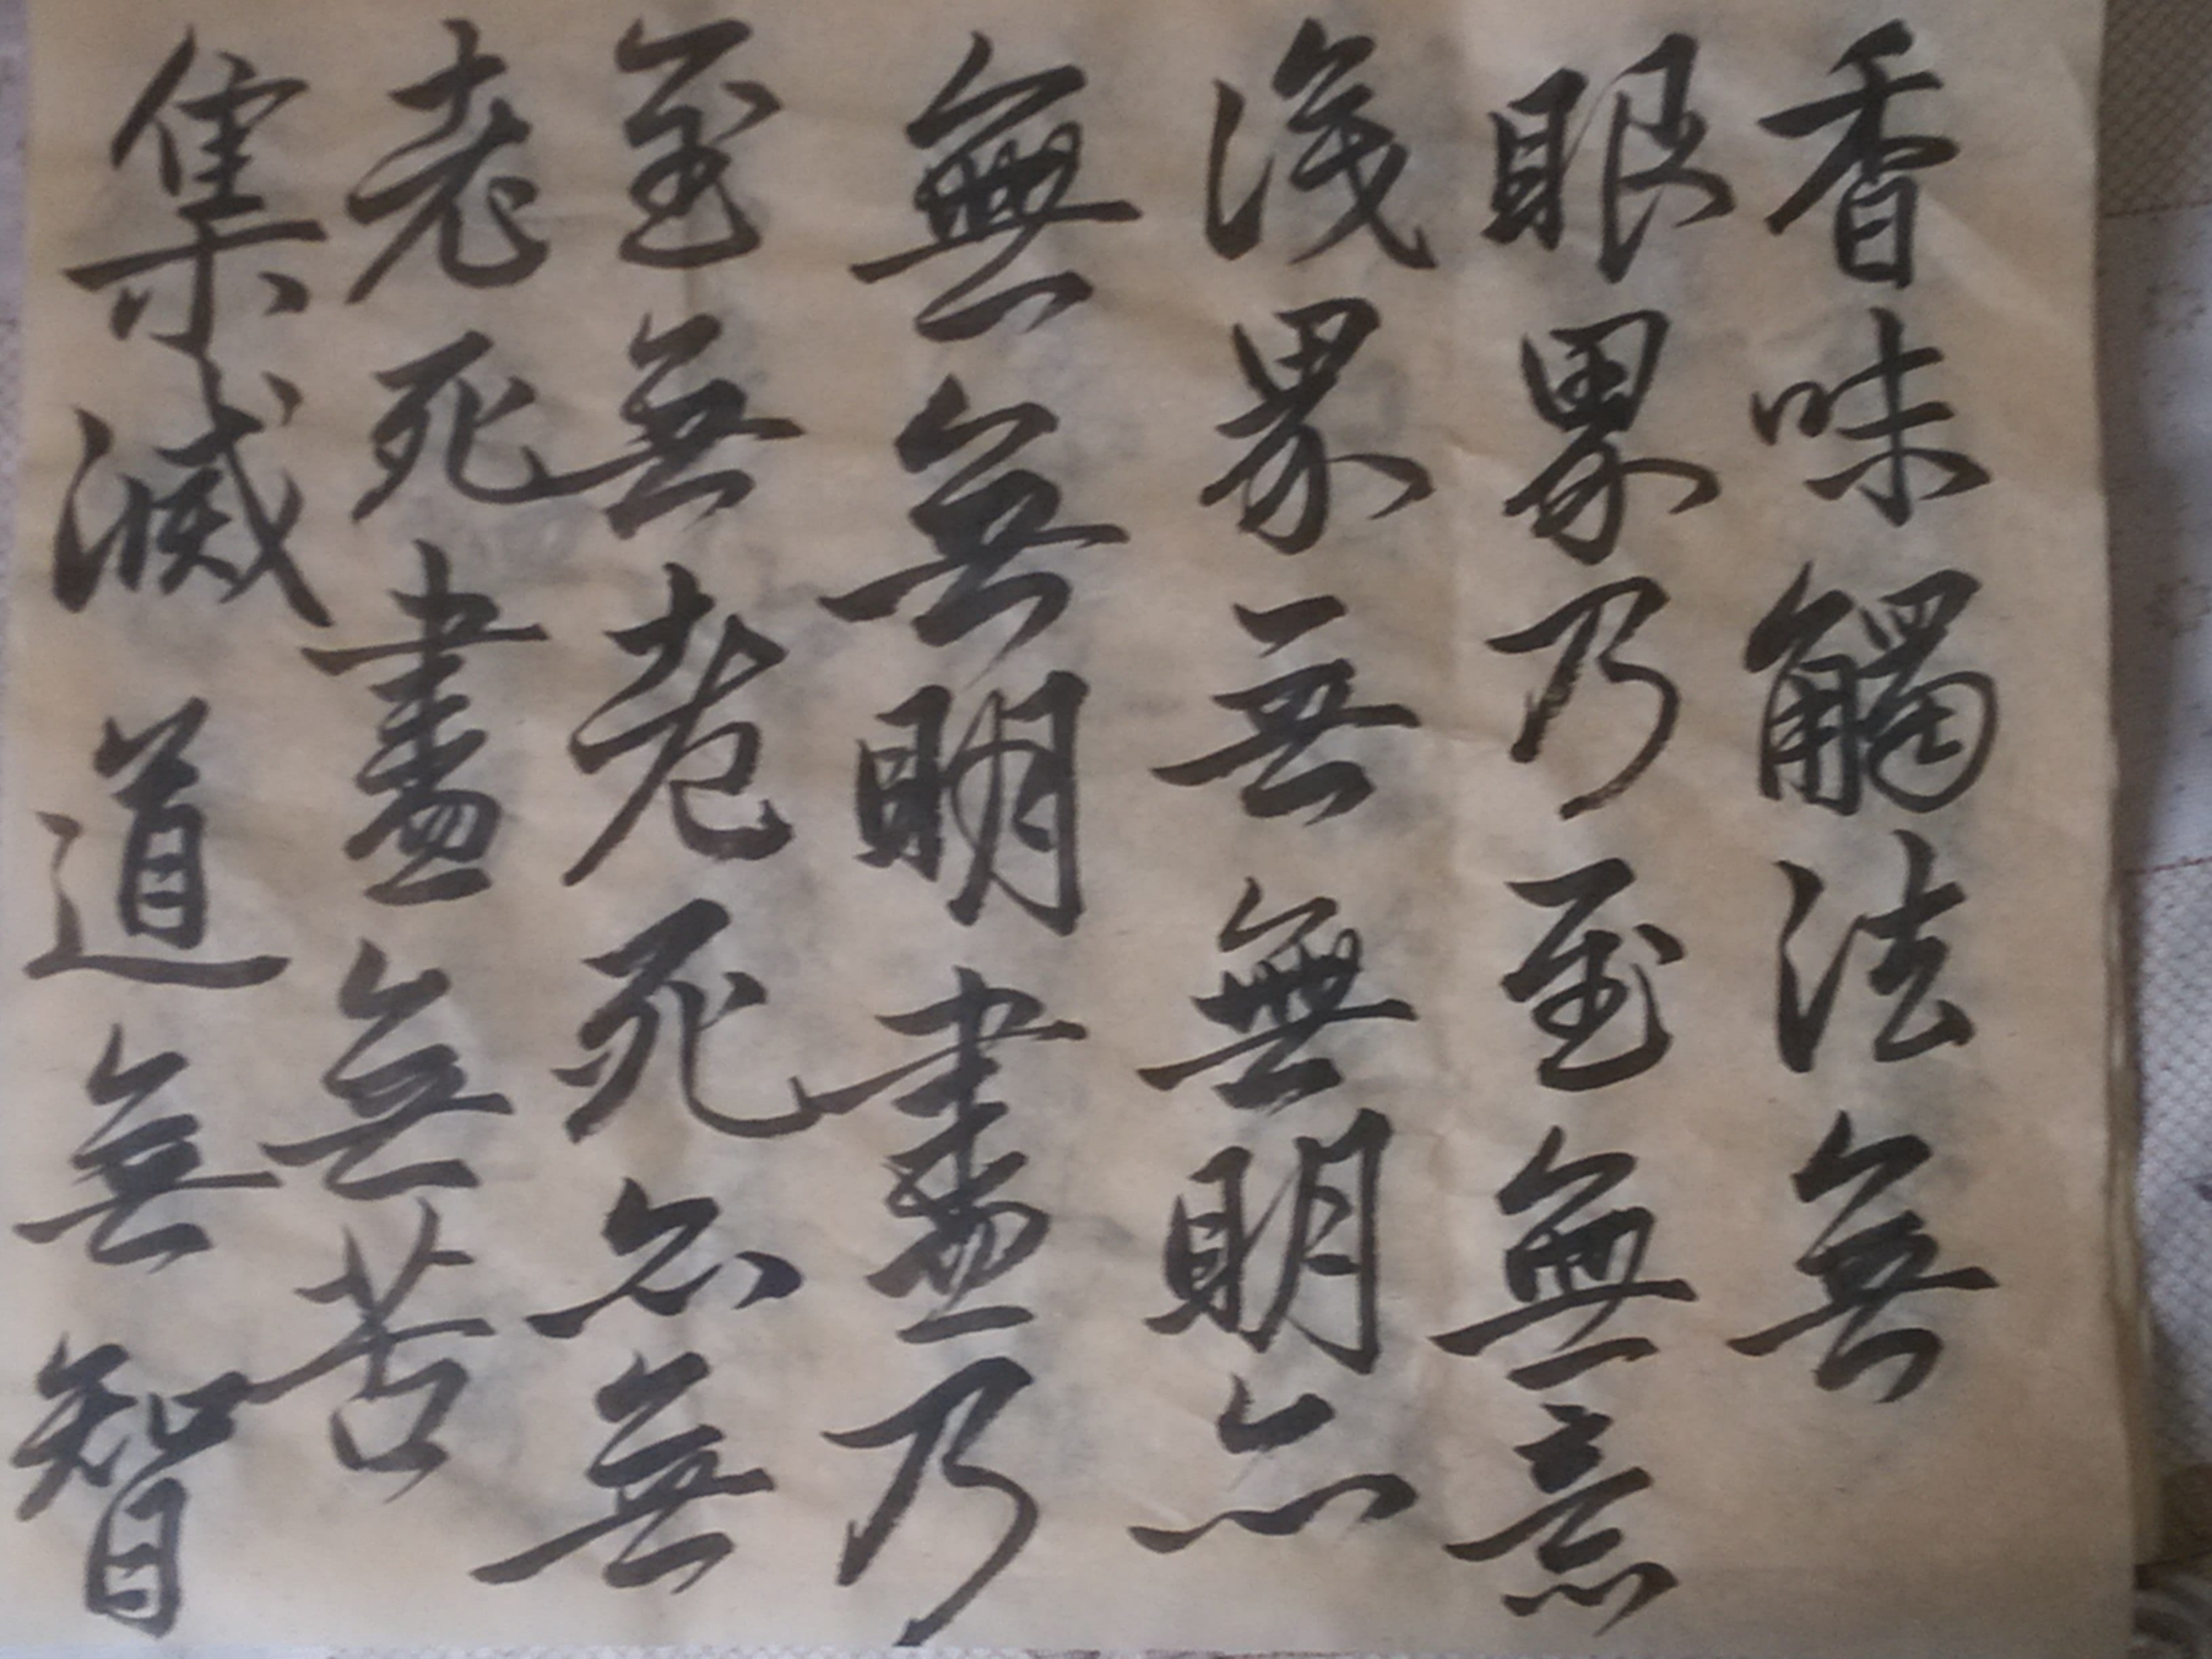 香味觸法無
眼界乃至無意
識界無無明亦
無無明盡乃
至無老死亦無
老死盡無苦
集滅道無智